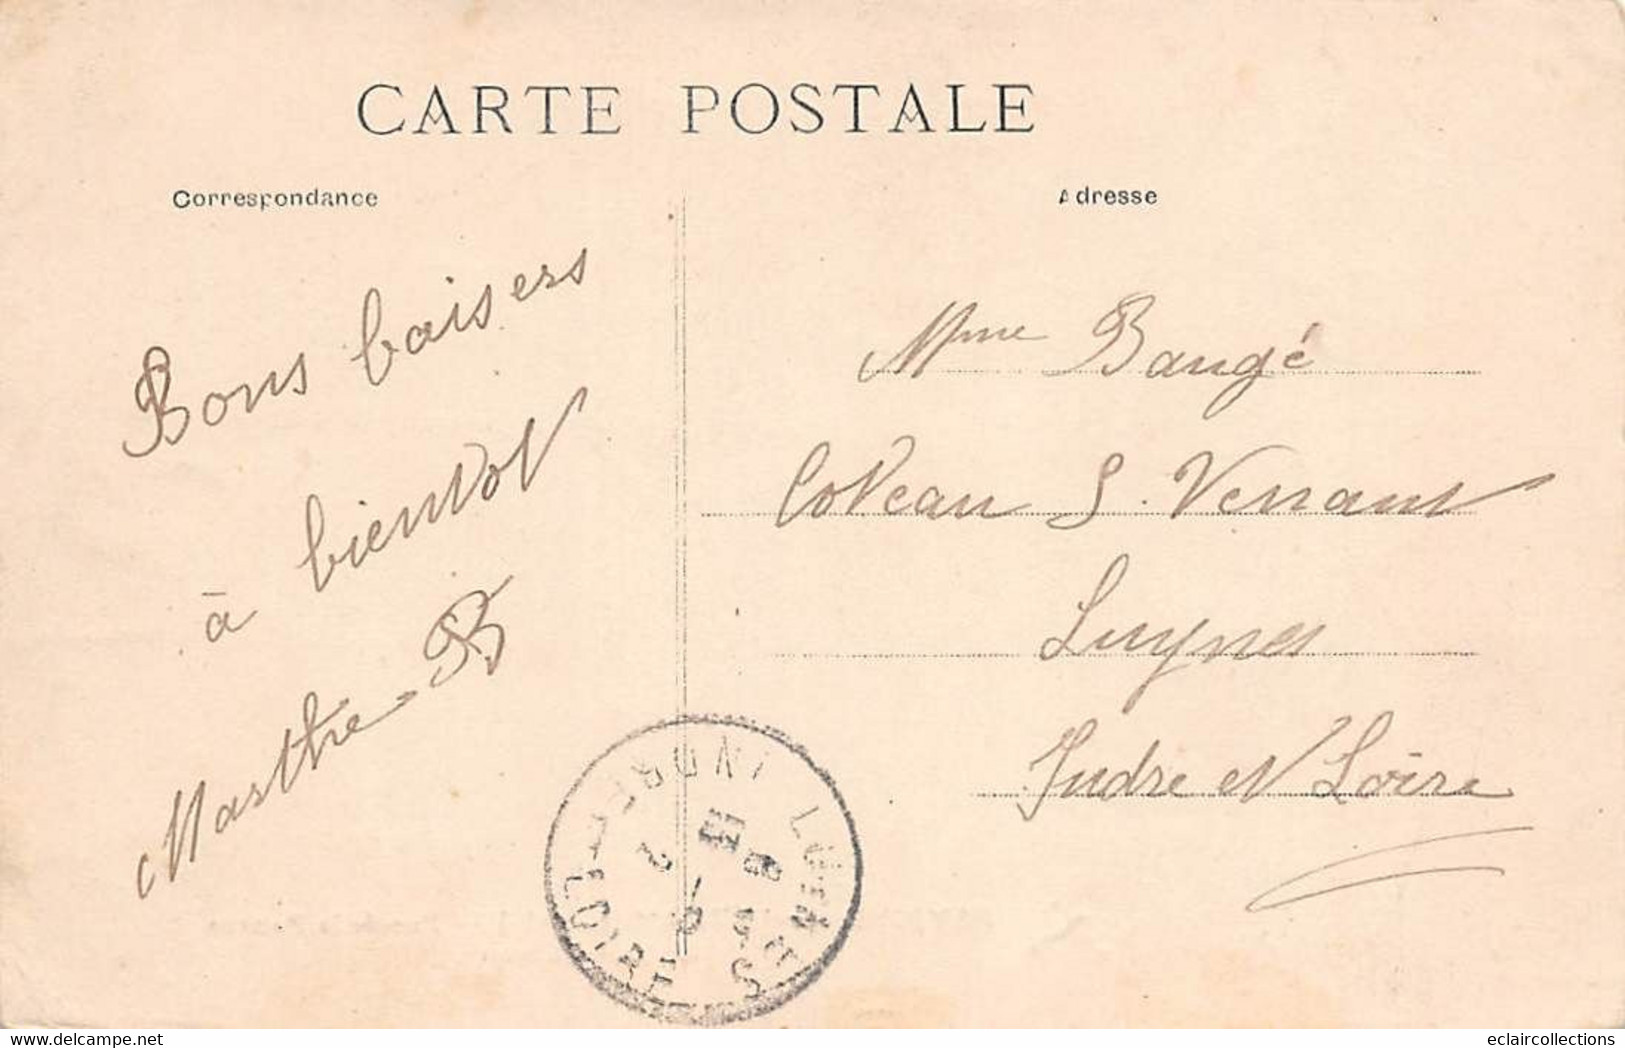 CARTE POSTALE
Correspondance
Adresse
Bons baisers
à bientot
Marthe B
Mme Baugé
Coteau S. Venant
Luynes
Indre et Loire
INDRE-ET-LOIRE
eclaircollections